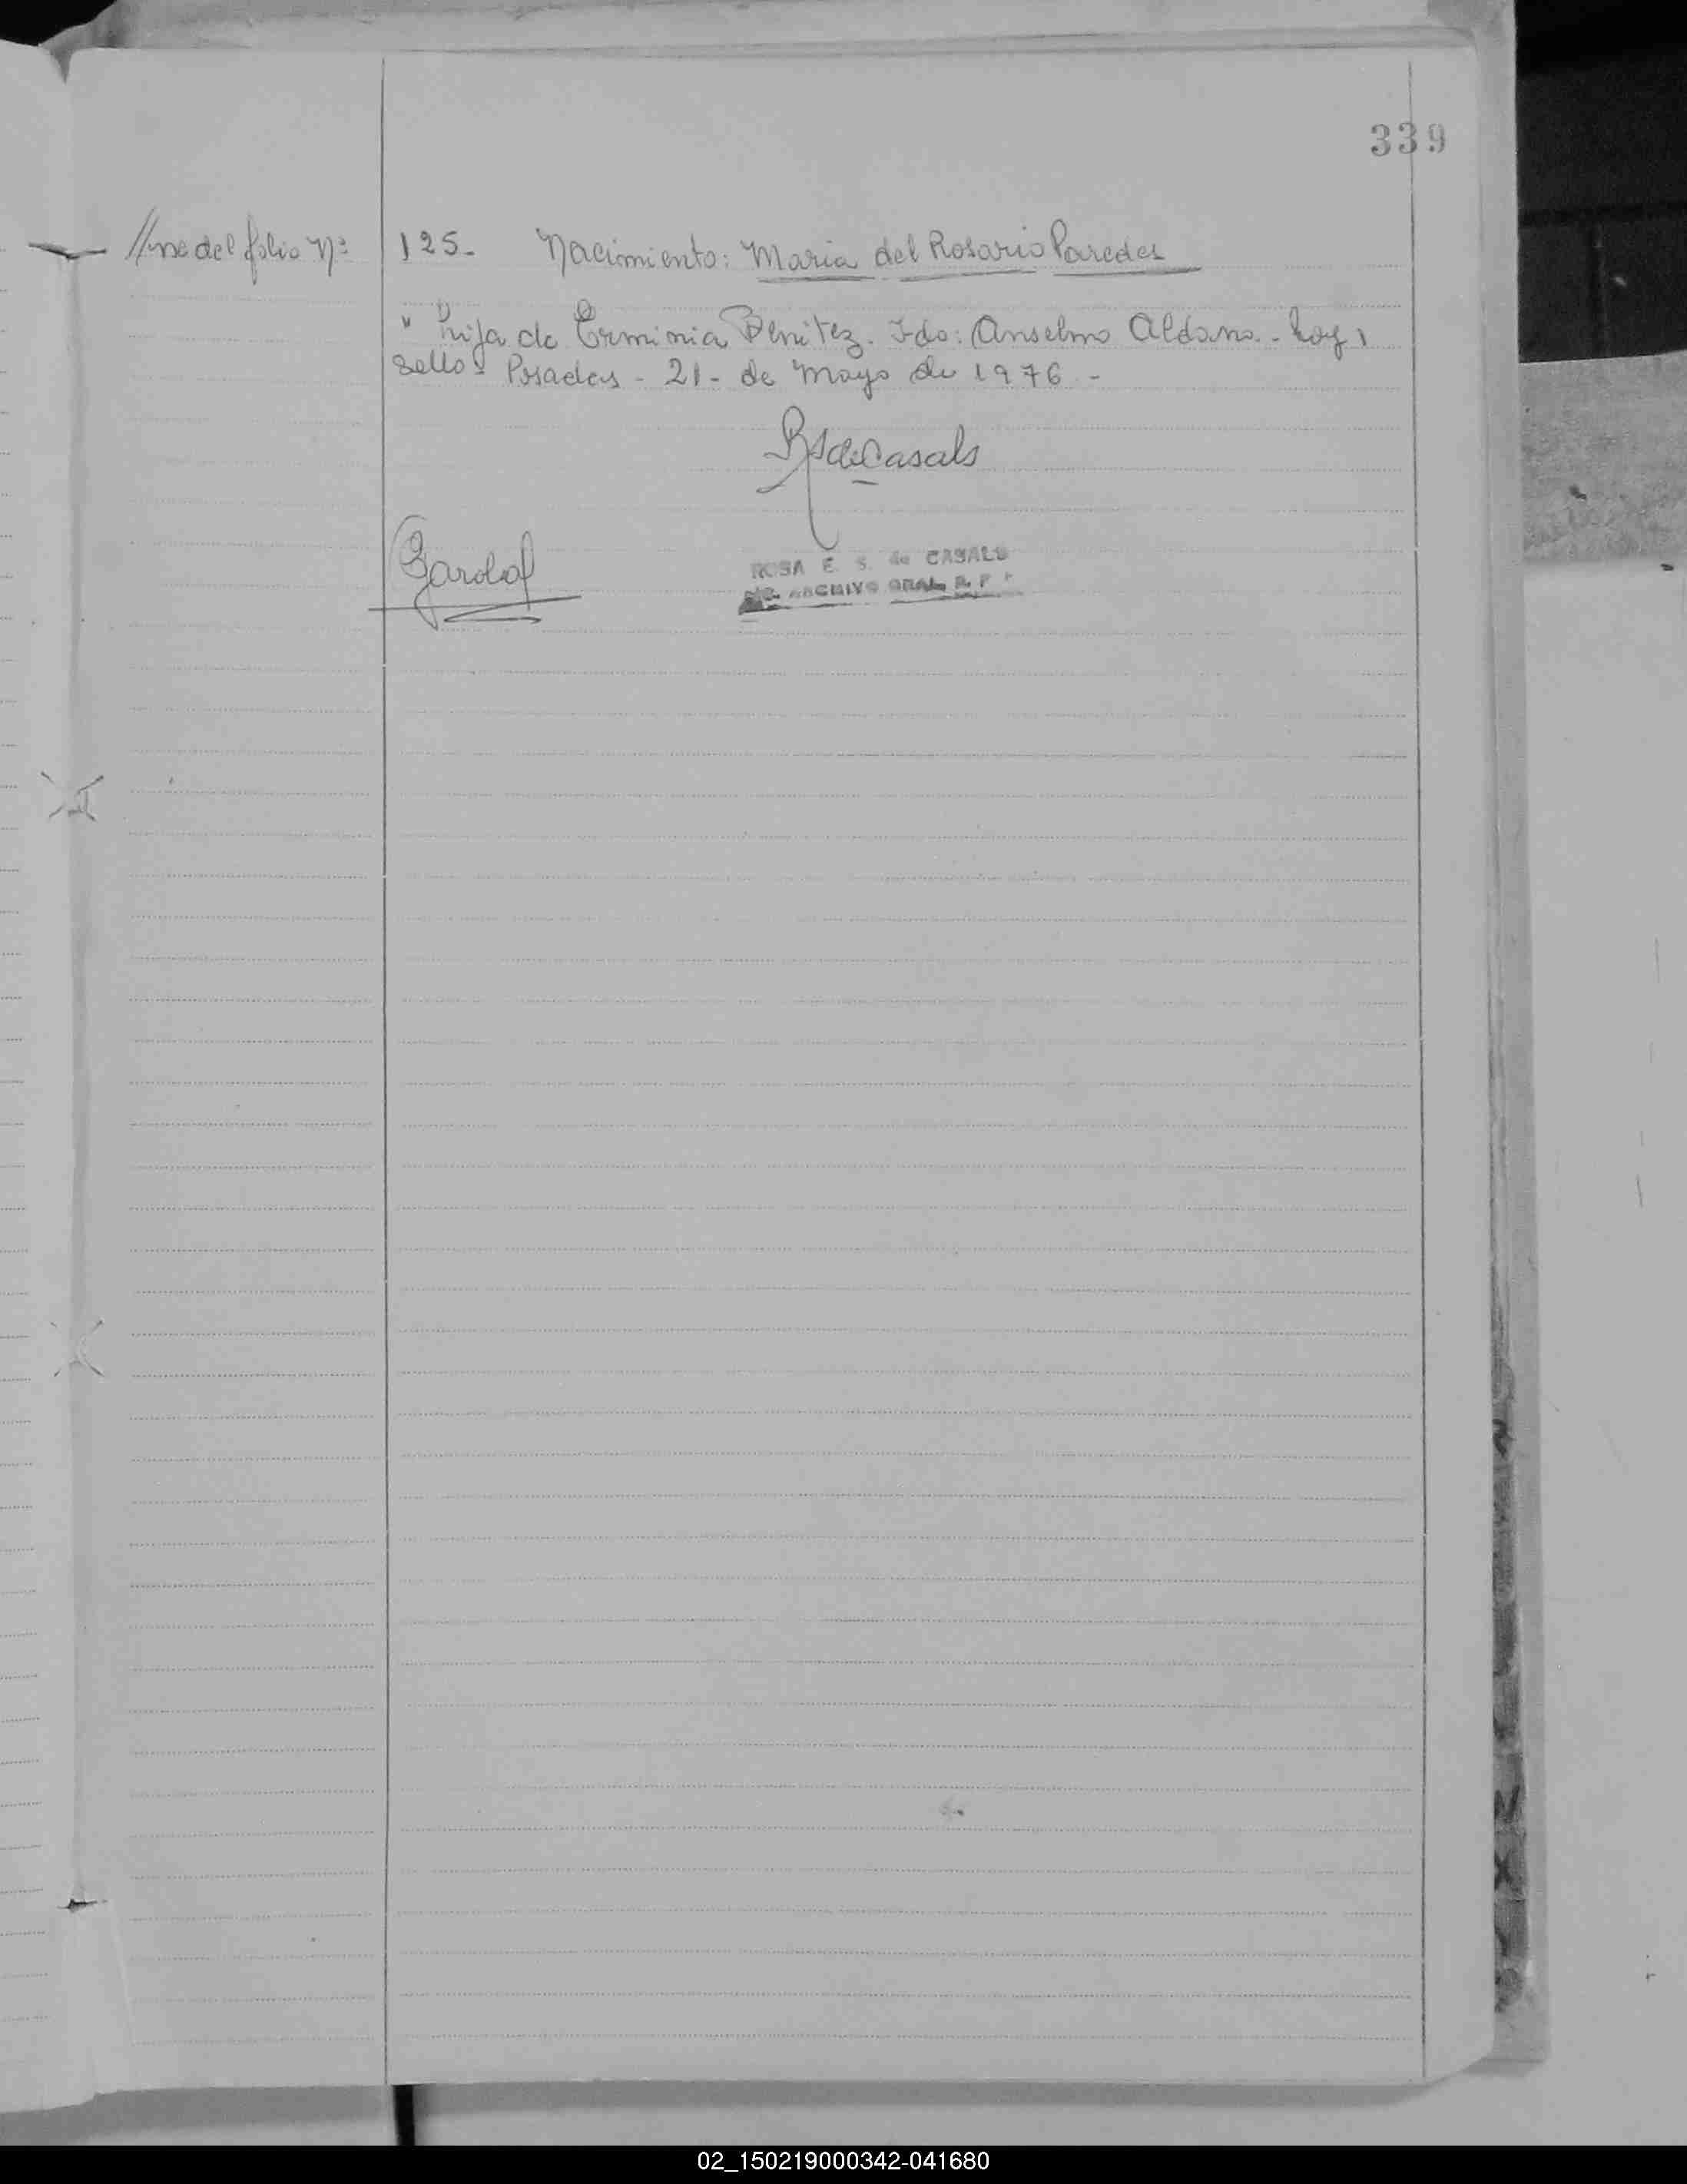 339
//ne del folio Nº 125. Nacimiento: Maria del Rosario Paredes
" hija de Erminia Benitez. Fdo: Anselmo Aldana. Hay 1
sello. Posadas - 21 - de Mayo de 1976 -
RSdeCasals
ROSA E. S. de CASALS
ARCHIVO GRAL. R. P.
02_150219000342-041680